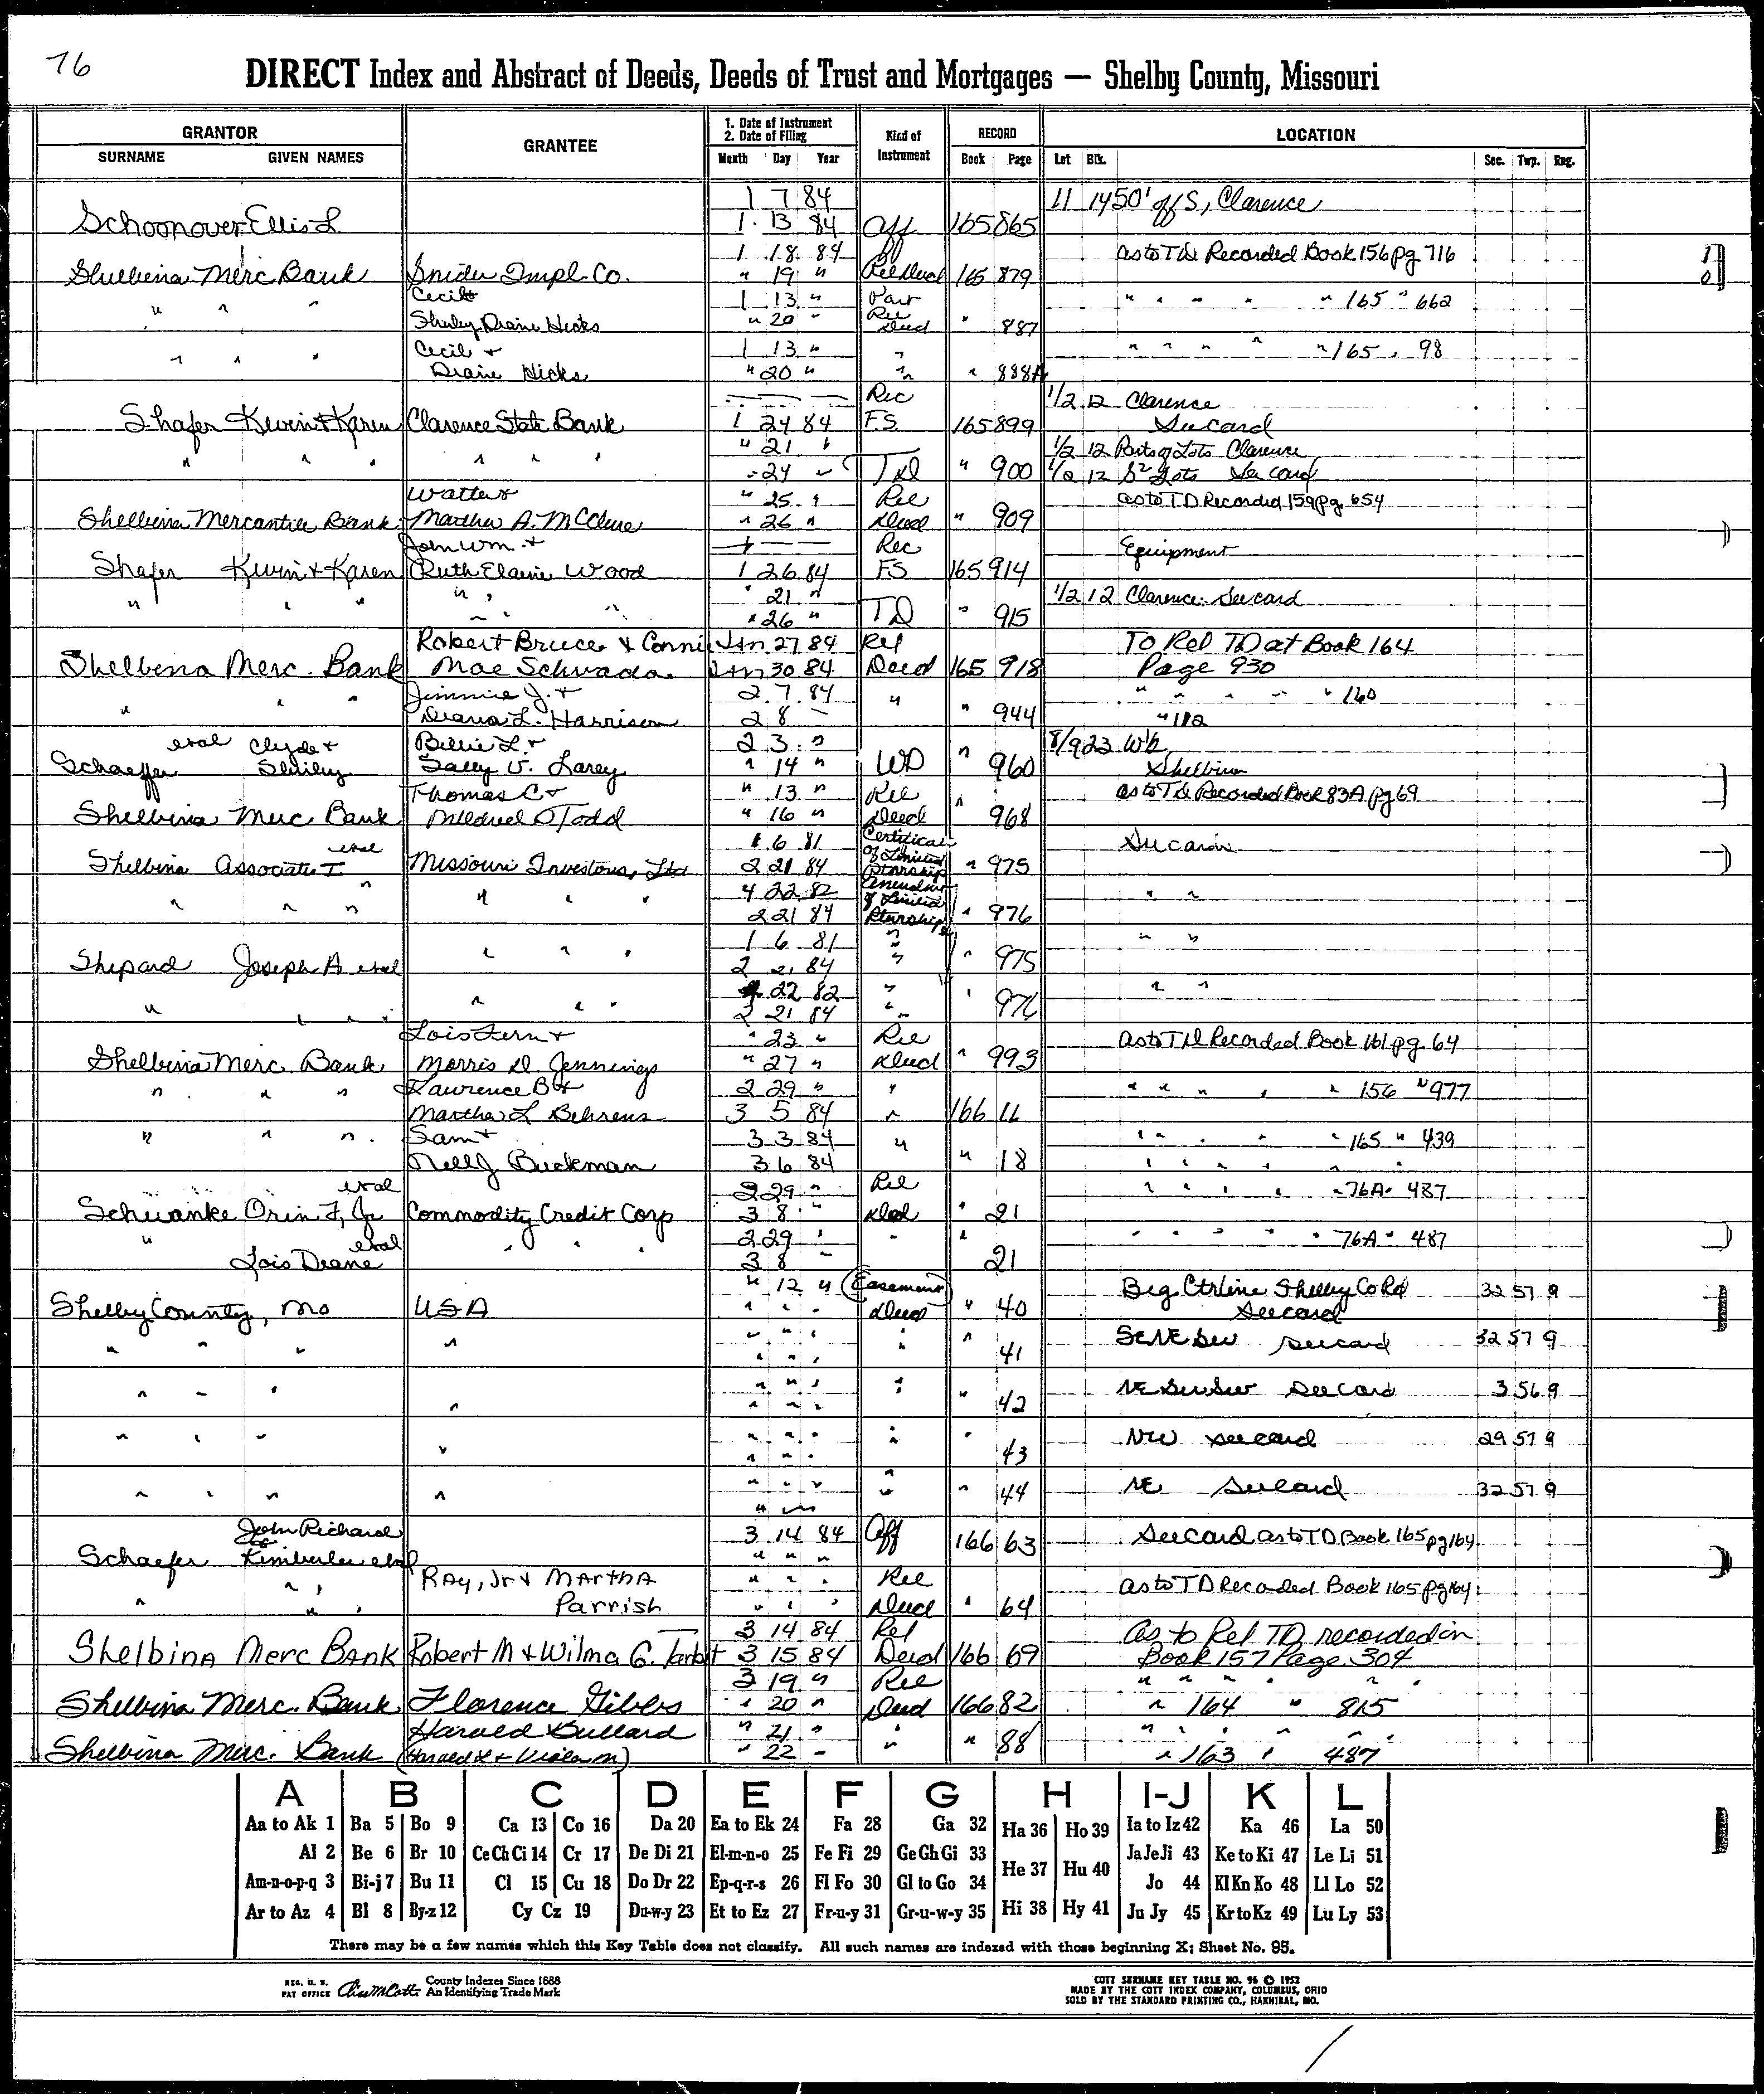 76
DIRECT Index and Abstract of Deeds, Deeds of Trust and Mortgages — Shelby County, Missouri
GRANTOR
SURNAME GIVEN NAMES
GRANTEE
1. Date of Instrument
2. Date of Filing
Month Day Year
Kind of Instrument
RECORD
Book Page
LOCATION
Lot Blk. Sec. Twp. Rng.
1 7 84 11 14 50' off S, Clarence
Schoonover Ellis L 1 13 84 Aff 165 865
1 18 84 as to TD Recorded Book 156 pg 716
Shelbina Merc Bank Snider Impl. Co. " 19 " Rel Deed 165 879
Cecil & 1 13 " Part " " " " " 165 " 662
" " " Shirley Diane Hicks " 20 " Rel Deed " 887
Cecil + 1 13 " " " " " " " 165 " 98
" " " Diane Hicks " 20 " " " 888A
Rec 1/2 12 Clarence
Shafer Kevin + Karen Clarence State Bank 1 24 84 F.S. 165 899 See card
" 21 " 1/2 12 Parts of Lots Clarence
" " " " " " " 24 " TD " 900 1/2 12 S2 Lots See card
Walter + " 25 " Rel as to TD Recorded 159 pg 654
Shelbina Mercantile Bank Martha A. McClure " 26 " Deed " 909
John Wm. + Rec Equipment
Shafer Kevin + Karen Ruth Elaine Wood 1 26 84 FS 165 914
" " " " " " 21 " 1/2 12 Clarence: See card
" " " 26 " TD " 915
Robert Bruce & Conni Jan 27 84 Rel To Rel TD at Book 164
Shelbina Merc. Bank Mae Schwada Jan 30 84 Deed 165 918 Page 930
Jimmie J. + 2 7 84 " " " " " " 160
" " " Diana L. Harrison 2 8 " " 944 " 112
etal Clyde + Billie L. + 2 3 " 8/9 23 Wk
Schaeffer Shirley Sally V. Larey " 14 " WD " 960 Shelbina
Thomas C + " 13 " Rel as to TD Recorded Book 83A pg 69
Shelbina Merc Bank Mildred O Todd " 16 " Deed " 968
etal 1 6 81 Certificate of Limited Ptnrship See card
Shelbina Associates I Missouri Investors, Ltd 2 21 84 " 975
" 4 22 82 Amendm of Limited Ptnrship " "
" " " " " " 2 21 84 " 976
1 6 81 " " "
Shepard Joseph A etal " " " 2 21 84 " " 975
4 22 82 " " "
" " " " " " " 2 21 84 " " 976
Lois Fern + " 23 " Rel as to TD Recorded Book 161 pg 64
Shelbina Merc. Bank Morris D. Jennings " 27 " Deed " 993
" " " Lawrence B + 2 29 " " " " " " " 156 " 977
Martha L Behrens 3 5 84 " 166 11
" " " Sam + 3 3 84 " " " " " " 165 " 439
Nell J Buckman 3 6 84 " 18 " " " " " "
etal 2 29 " Rel " " " " " 76A " 487
Schwanke Orin F, Jr Commodity Credit Corp 3 8 " Ded " 21
" etal " " " 2 29 " " " " " " " " 76A " 487
Lois Deane 3 8 " 21
" 12 " (Easement) Beg Ctrline Shelby Co Rd 32 57 9
Shelby County, Mo USA " " " Deed " 40 See card
" " " " " " " " " 41 SENE SW See card 32 57 9
" " " " " " " " " 42 NE SW SW See Card 3 56 9
" " " " " " " " " 43 NW See card 29 57 9
" " " " " " " " " 44 NE See card 32 57 9
John Richard 3 14 84 Aff 166 63 See Card as to TD Book 165 pg 164
Schaefer & Kimberlee etal " " "
" " Ray, Jr & Martha " " " Rel as to TD Recorded Book 165 pg 164
" " " Parrish " " " Deed " 64
3 14 84 Rel As to Rel TD recorded in
Shelbina Merc Bank Robert M & Wilma G. Tarbit 3 15 84 Deed 166 69 Book 157 Page 304
3 19 " Rel " " " " "
Shelbina Merc. Bank Florence Gibbs " 20 " Deed 166 82 " 164 " 815
Harold Bullard " 21 " " " " " " "
Shelbina Merc. Bank (Harold L + Viola M) " 22 " " " 88 " 163 " 487
A B C D E F G H I-J K L
Aa to Ak 1 Ba 5 Bo 9 Ca 13 Co 16 Da 20 Ea to Ek 24 Fa 28 Ga 32 Ha 36 Ho 39 Ia to Iz 42 Ka 46 La 50
Al 2 Be 6 Br 10 Ce Ch Ci 14 Cr 17 De Di 21 El-m-n-o 25 Fe Fi 29 Ge Gh Gi 33 He 37 Hu 40 Ja Je Ji 43 Ke to Ki 47 Le Li 51
Am-n-o-p-q 3 Bi-j 7 Bu 11 Cl 15 Cu 18 Do Dr 22 Ep-q-r-s 26 Fl Fo 30 Gl to Go 34 Jo 44 Kl Kn Ko 48 Ll Lo 52
Ar to Az 4 Bl 8 By-z 12 Cy Cz 19 Du-w-y 23 Et to Ez 27 Fr-u-y 31 Gr-u-w-y 35 Hi 38 Hy 41 Ju Jy 45 Kr to Kz 49 Lu Ly 53
There may be a few names which this Key Table does not classify. All such names are indexed with those beginning X; Sheet No. 95.
REG. U. S. PAT OFFICE County Indexes Since 1888 An Identifying Trade Mark
COTT SURNAME KEY TABLE NO. 96 © 1952
MADE BY THE COTT INDEX COMPANY, COLUMBUS, OHIO
SOLD BY THE STANDARD PRINTING CO., HANNIBAL, MO.